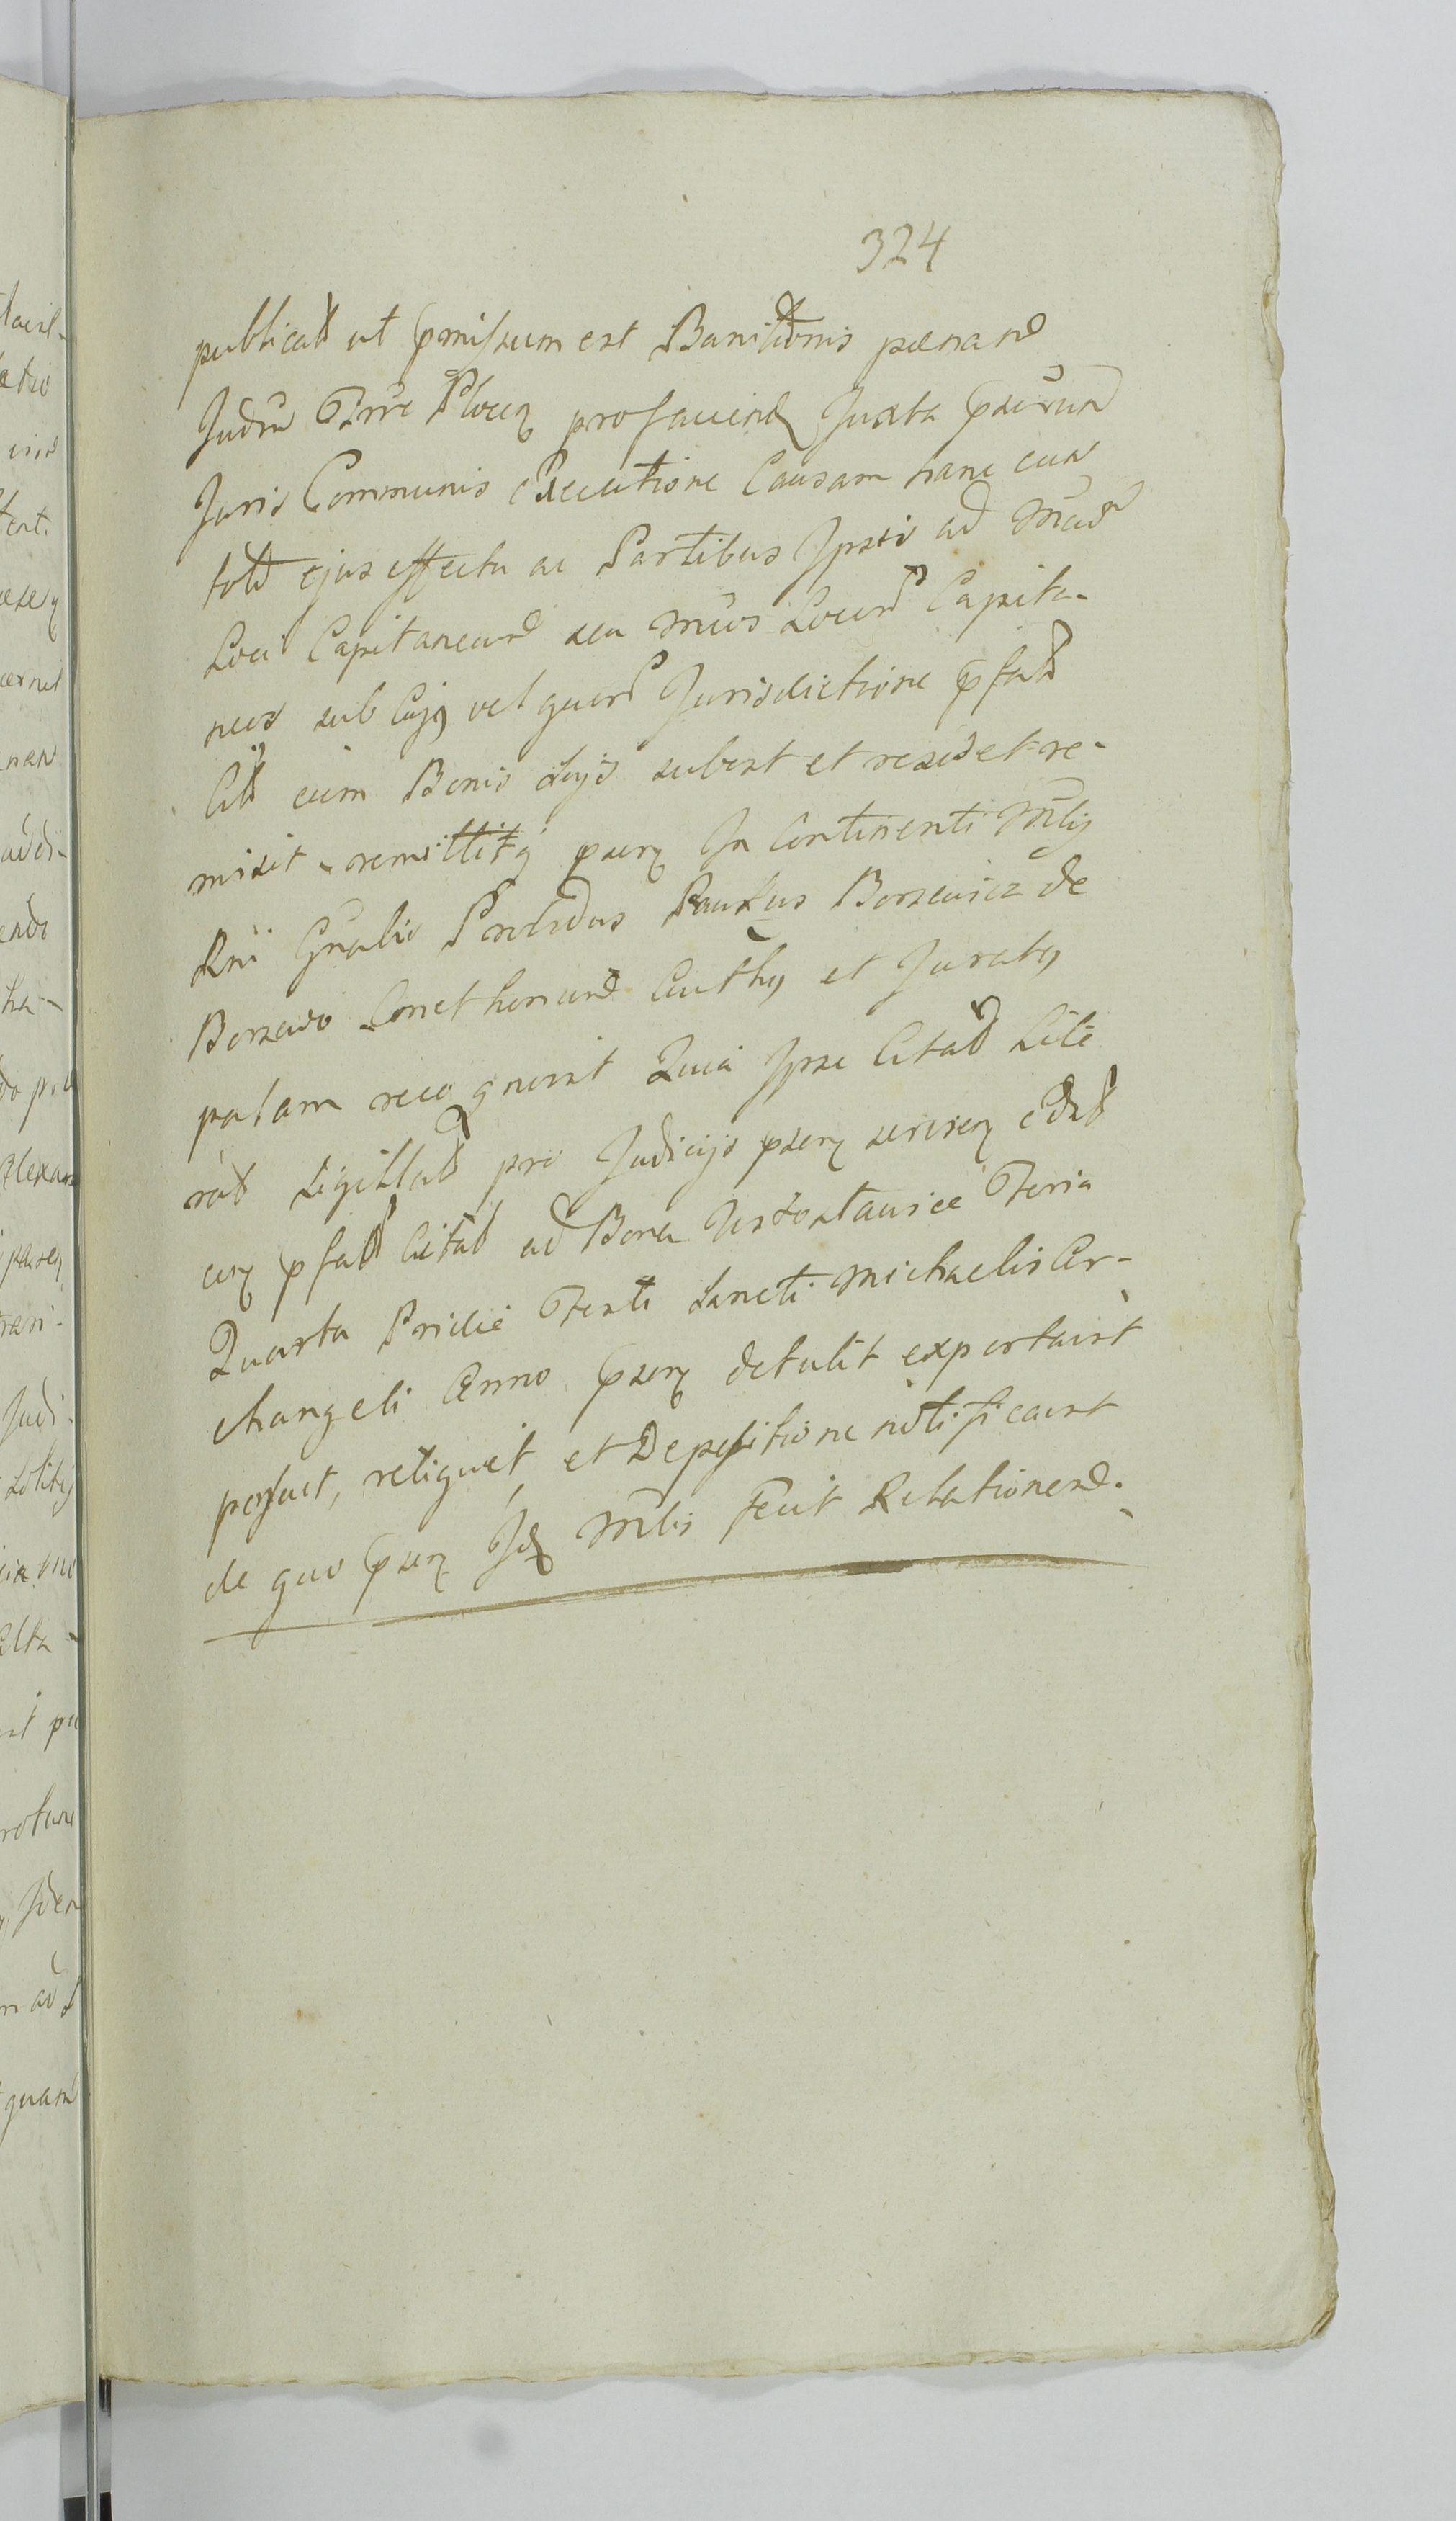 324
publicat ut pmissum est Banitionis pænam
Judm Trre Plocen profauend Juxta psentem
Juris Communis Executione Causam hanc cum
toto ejus effectu ac Partibus Ipsis ad Mcum
Loci Capitaneum seu Mcos Locum Capita-
neos sub Cujq vel quorum Jurisdictione pfat
Citt cum Bonis Suis subest et residet re-
misit remittitq psen In Continenti Mlis
Rni Gnalis Providus Paulus Borzewicz de
Borzewo Conethonum Authq et Juratq
palam recognovit Quia Ipse Citat Lite
rat Sigillat pro Judicijs psen servien Edit
cus pfat Citat ad Bona Feria
Quarta Pridie Festi Sancti Michaelis Ar-
changeli Anno psen detulit exportavit
posuit, reliquit, et Depositione notificavit
de quo psen Idx Mlis Fecit Relationem.